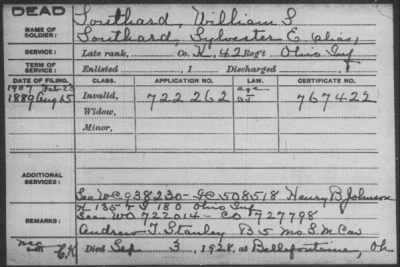 DEAD
NAME OF SOLDIER:
Southard, William S
Southard, Sylvester E. (alias)
SERVICE: Late rank, Co. K, 42 Reg't Ohio Inf
TERM OF SERVICE: Enlisted , 1 Discharged , 1
DATE OF FILING. CLASS. APPLICATION NO. LAW. CERTIFICATE NO.
1907 Feb 23 age
1889 Aug 15 Invalid, 722262 G.L. 767422
Widow,
Minor,
ADDITIONAL SERVICES:
See WC 938230 - IC 508518 Henry B Johnson
K 135 & I 180 Ohio Inf
REMARKS: See WO 722014 - CO 727798
Andrew T. Stanley B 5 Mo. S. M. Cav
Died Sep 3, 1928, at Bellefontaine, Oh